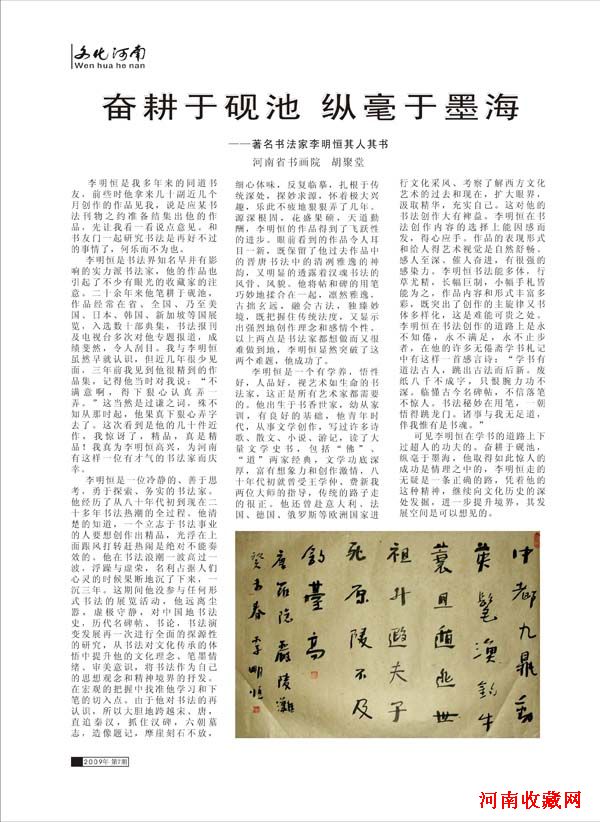 文化河南
Wen hua he nan
奋耕于砚池 纵毫于墨海
——著名书法家李明恒其人其书
河南省书画院 胡聚堂
李明恒是我多年来的同道书
友，前些时他拿来几十副近几个
月创作的作品见我，说是应某书
法刊物之约准备结集出他的作
品，先让我看一看说点意见。和
书友们一起研究书法是再好不过
的事情了，何乐而不为也。
李明恒是书法界知名早并有影
响的实力派书法家，他的作品也
引起了不少有眼光的收藏家的注
意。二十余年来他笔耕于砚池，
作品经常在省、全国、乃至美
国、日本、韩国、新加坡等国展
览，入选数十部典集，书法报刊
及电视台多次对他专题报道，成
绩斐然，令人刮目。我与李明恒
虽然早就认识，但近几年很少见
面，三年前我见到他很精到的作
品集，记得他当时对我说：“不
满意啊，得下狠心认真弄一
弄。”这当然是过谦之词，殊不
知从那时起，他果真下狠心弄字
去了。这次看到是他的几十件近
作，我惊讶了，精品，真是精
品！我真为李明恒高兴，为河南
有这样一位有才气的书法家而庆
幸。
李明恒是一位冷静的、善于思
考，勇于探索、务实的书法家。
他经历了从八十年代初到现在二
十多年书法热潮的全过程。他清
楚的知道，一个立志于书法事业
的人要想创作出精品，光浮在上
面跟风打转赶热闹是绝对不能奏
效的。他在书法浪潮一波高过一
波，浮躁与虚荣，名利占据人们
心灵的时候果断地沉了下来，一
沉三年。这期间他没参与任何形
式书法的展览活动，他远离尘
嚣，虚极守静，对中国地书法
史，历代名碑帖、书论，书法演
变发展再一次进行全面的探源性
的研究，从书法对文化传承的体
悟中提升他的文化理念、笔墨情
绪、审美意识，将书法作为自己
的思想观念和精神境界的抒发。
在宏观的把握中找准他学习和下
笔的切入点。由于他对书法的再
认识，所以大胆地跨越宋、唐，
直追秦汉，抓住汉碑，六朝墓
志，造像题记，摩崖刻石不放，
细心体味，反复临摹，扎根于传
统深处，探妙求源，怀着极大兴
趣，乐此不疲地狠狠弄了几年。
源深根固，花盛果硕，天道勤
酬，李明恒的作品得到了飞跃性
的进步。眼前看到的作品令人耳
目一新，既保留了他过去作品中
的晋唐书法中的清冽雅逸的神
韵，又明显的透露着汉魂书法的
风骨、风貌。他将帖和碑的用笔
巧妙地揉合在一起，凛然雅逸，
古拙玄远，融会古法，独臻妙
境，既把握住传统法度，又显示
出强烈地创作理念和感情个性。
以上两点是书法家都想做而又很
难做到地，李明恒显然突破了这
两个难题，他成功了。
李明恒是一个有学养，悟性
好，人品好，视艺术如生命的书
法家，这正是所有艺术家都需要
的。他出生于书香世家，幼从家
训，有良好的基础，他青年时
代，从事文学创作，写过许多诗
歌、散文、小说、游记，读了大
量文学史书，包括“佛”、
“道”两家经典，文学功底深
厚，富有想象力和创作激情，八
十年代初就曾受王学仲、费新我
两位大师的指导，传统的路子走
的很正。他还曾赴意大利、法
国、德国、俄罗斯等欧洲国家进
行文化采风、考察了解西方文化
艺术的过去和现在，扩大眼界，
汲取精华，充实自己。这对他的
书法创作大有裨益。李明恒在书
法创作内容的选择上能因感而
发，得心应手。作品的表现形式
和给人得艺术视觉是自然舒畅，
感人至深、催人奋进，有很强的
感染力。李明恒书法能多体，行
草尤精，长幅巨制，小幅手札皆
能为之。作品内容和形式丰富多
彩，既突出了创作的主旋律又书
体多样化，这是难能可贵之处。
李明恒在书法创作的道路上是永
不知倦，永不满足，永不止步
者，在他的许多无倦斋学书札记
中有这样一首感言诗：“学书有
道法古人，跳出古法而后新。废
纸八千不成字，只恨腕力功不
深。临懂古今名碑帖，不信落笔
不惊人。书法秘妙在用笔，一朝
悟得跳龙门。诸事与我无足道，
伴我惟有是书魂。”
可见李明恒在学书的道路上下
过超人的功夫的。奋耕于砚池，
纵毫于墨海，他取得如此惊人的
成功是情理之中的，李明恒走的
无疑是一条正确的路，凭着他的
这种精神，继续向文化历史的深
处发掘，进一步提升境界，其发
展空间是可以想见的。
中都九鼎动
英髦渔钓牛
蓑且遁逃世
祖升遐夫子
死原陵不及
钓台高
唐石隐严陵滩
癸未春 李明恒
2009年 第7期
河南收藏网